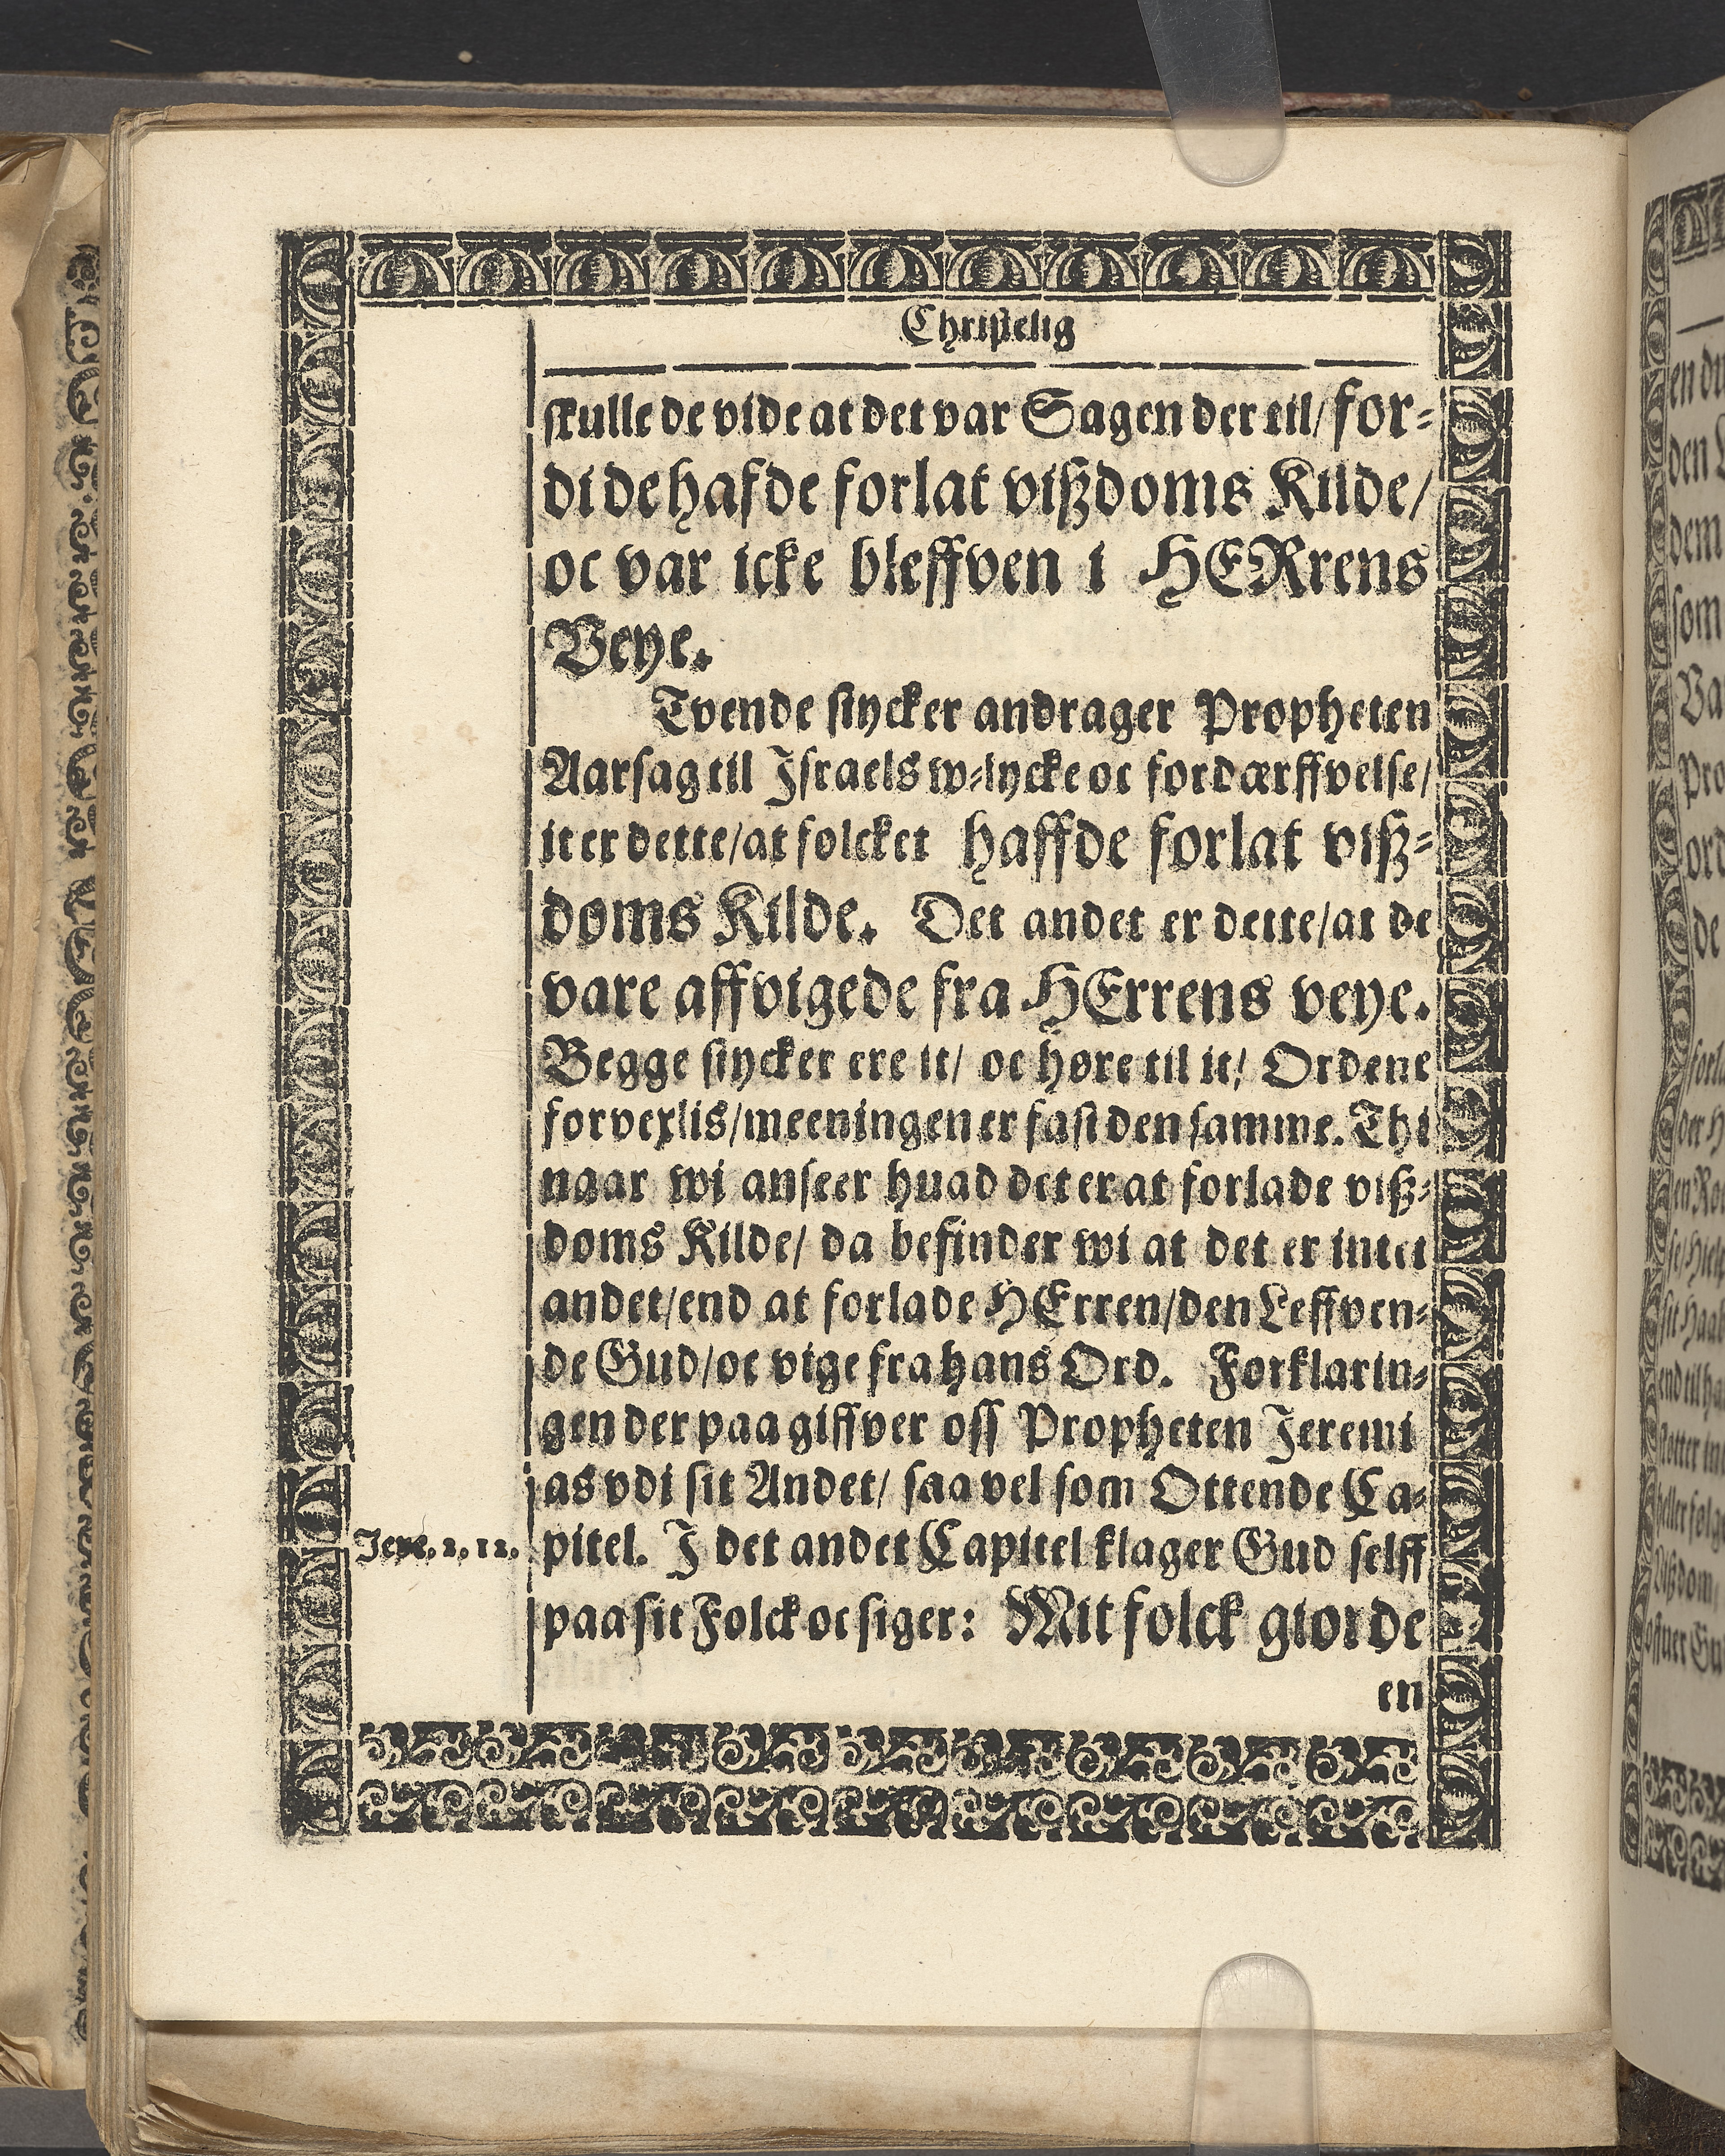 Christelig
skulle de vide at det var Sagen der til/ for-
di de hafde forlat vißdoms Kilde/
oc var icke bleffven i HERrens
Veye.
Tvende stycker andrager Propheten
Aarsag til Israels w-lycke oc fordærffvelse/
it er dette/at folcket haffde forlat viß-
doms Kilde. Det andet er dette/at de
vare affvigede fra HErrens veye.
Begge stycker ere it/ oc høre til it/ Ordene
forvexlis/meeningen er fast den samme. Thi
naar wi anseer huad det er at forlade viß-
doms Kilde/ da befinder wi at det er intet
andet/end at forlade HErren/den Leffven-
de Gud/oc vige fra hans Ord. Forklarin-
gen der paa giffver oss Propheten Jeremi
as vdi sit Andet/ saa vel som Ottende Ca-
Jere. 2. 12. pitel. I det andet Capitel klager Gud selff
paa sit Folck oc siger: Mit folck giorde
en